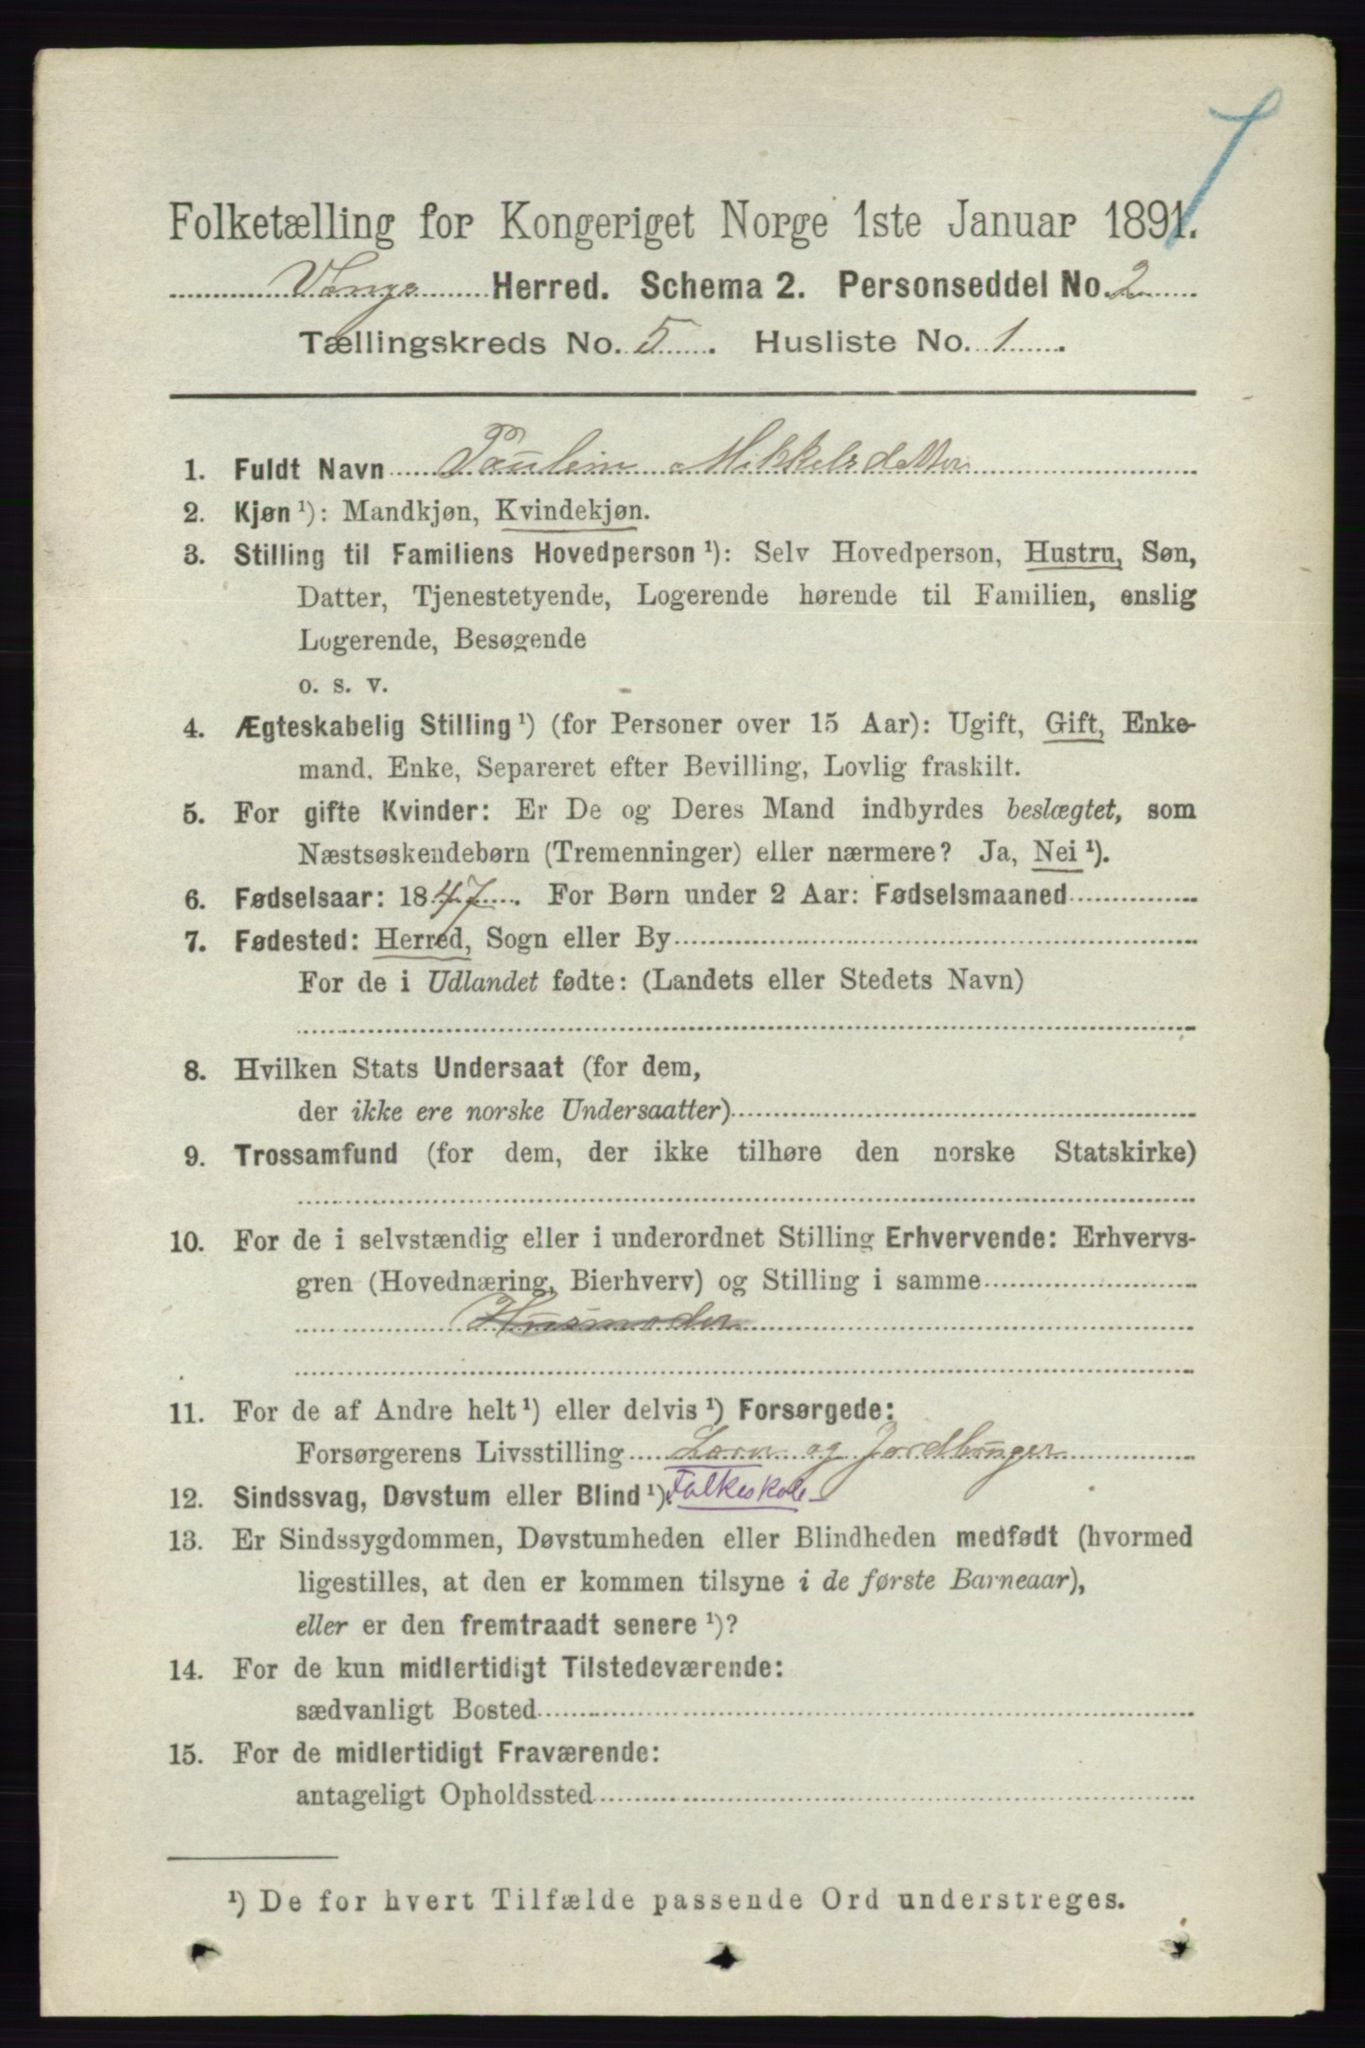 Folketælling for Kongeriget Norge 1ste Januar 1891.
Vangs Herred. Schema 2. Personseddel No. 2
Tællingskreds No. 5. Husliste No. 1.
1. Fuldt Navn Paulin Mikkelsdatter
2. Kjøn ¹): Mandkjøn, Kvindekjøn.
3. Stilling til Familiens Hovedperson ¹): Selv Hovedperson, Hustru, Søn,
Datter, Tjenestetyende, Logerende hørende til Familien, enslig
Logerende, Besøgende
o. s. v.
4. Ægteskabelig Stilling ¹) (for Personer over 15 Aar): Ugift, Gift, Enke-
mand, Enke, Separeret efter Bevilling, Lovlig fraskilt.
5. For gifte Kvinder: Er De og Deres Mand indbyrdes beslægtet, som
Næstsøskendebørn (Tremenninger) eller nærmere? Ja, Nei ¹).
6. Fødselsaar: 1847. For Børn under 2 Aar: Fødselsmaaned
7. Fødested: Herred, Sogn eller By
For de i Udlandet fødte: (Landets eller Stedets Navn)
8. Hvilken Stats Undersaat (for dem,
der ikke ere norske Undersaatter)
9. Trossamfund (for dem, der ikke tilhøre den norske Statskirke)
10. For de i selvstændig eller i underordnet Stilling Erhvervende: Erhvervs-
gren (Hovednæring, Bierhverv) og Stilling i samme
Husmoder
11. For de af Andre helt ¹) eller delvis ¹) Forsørgede:
Forsørgerens Livsstilling Lærer og Jordbruger
12. Sindssvag, Døvstum eller Blind ¹). Folkeskole
13. Er Sindssygdommen, Døvstumheden eller Blindheden medfødt (hvormed
ligestilles, at den er kommen tilsyne i de første Barneaar),
eller er den fremtraadt senere ¹)?
14. For de kun midlertidigt Tilstedeværende:
sædvanligt Bosted
15. For de midlertidigt Fraværende:
antageligt Opholdssted
¹) De for hvert Tilfælde passende Ord understreges.